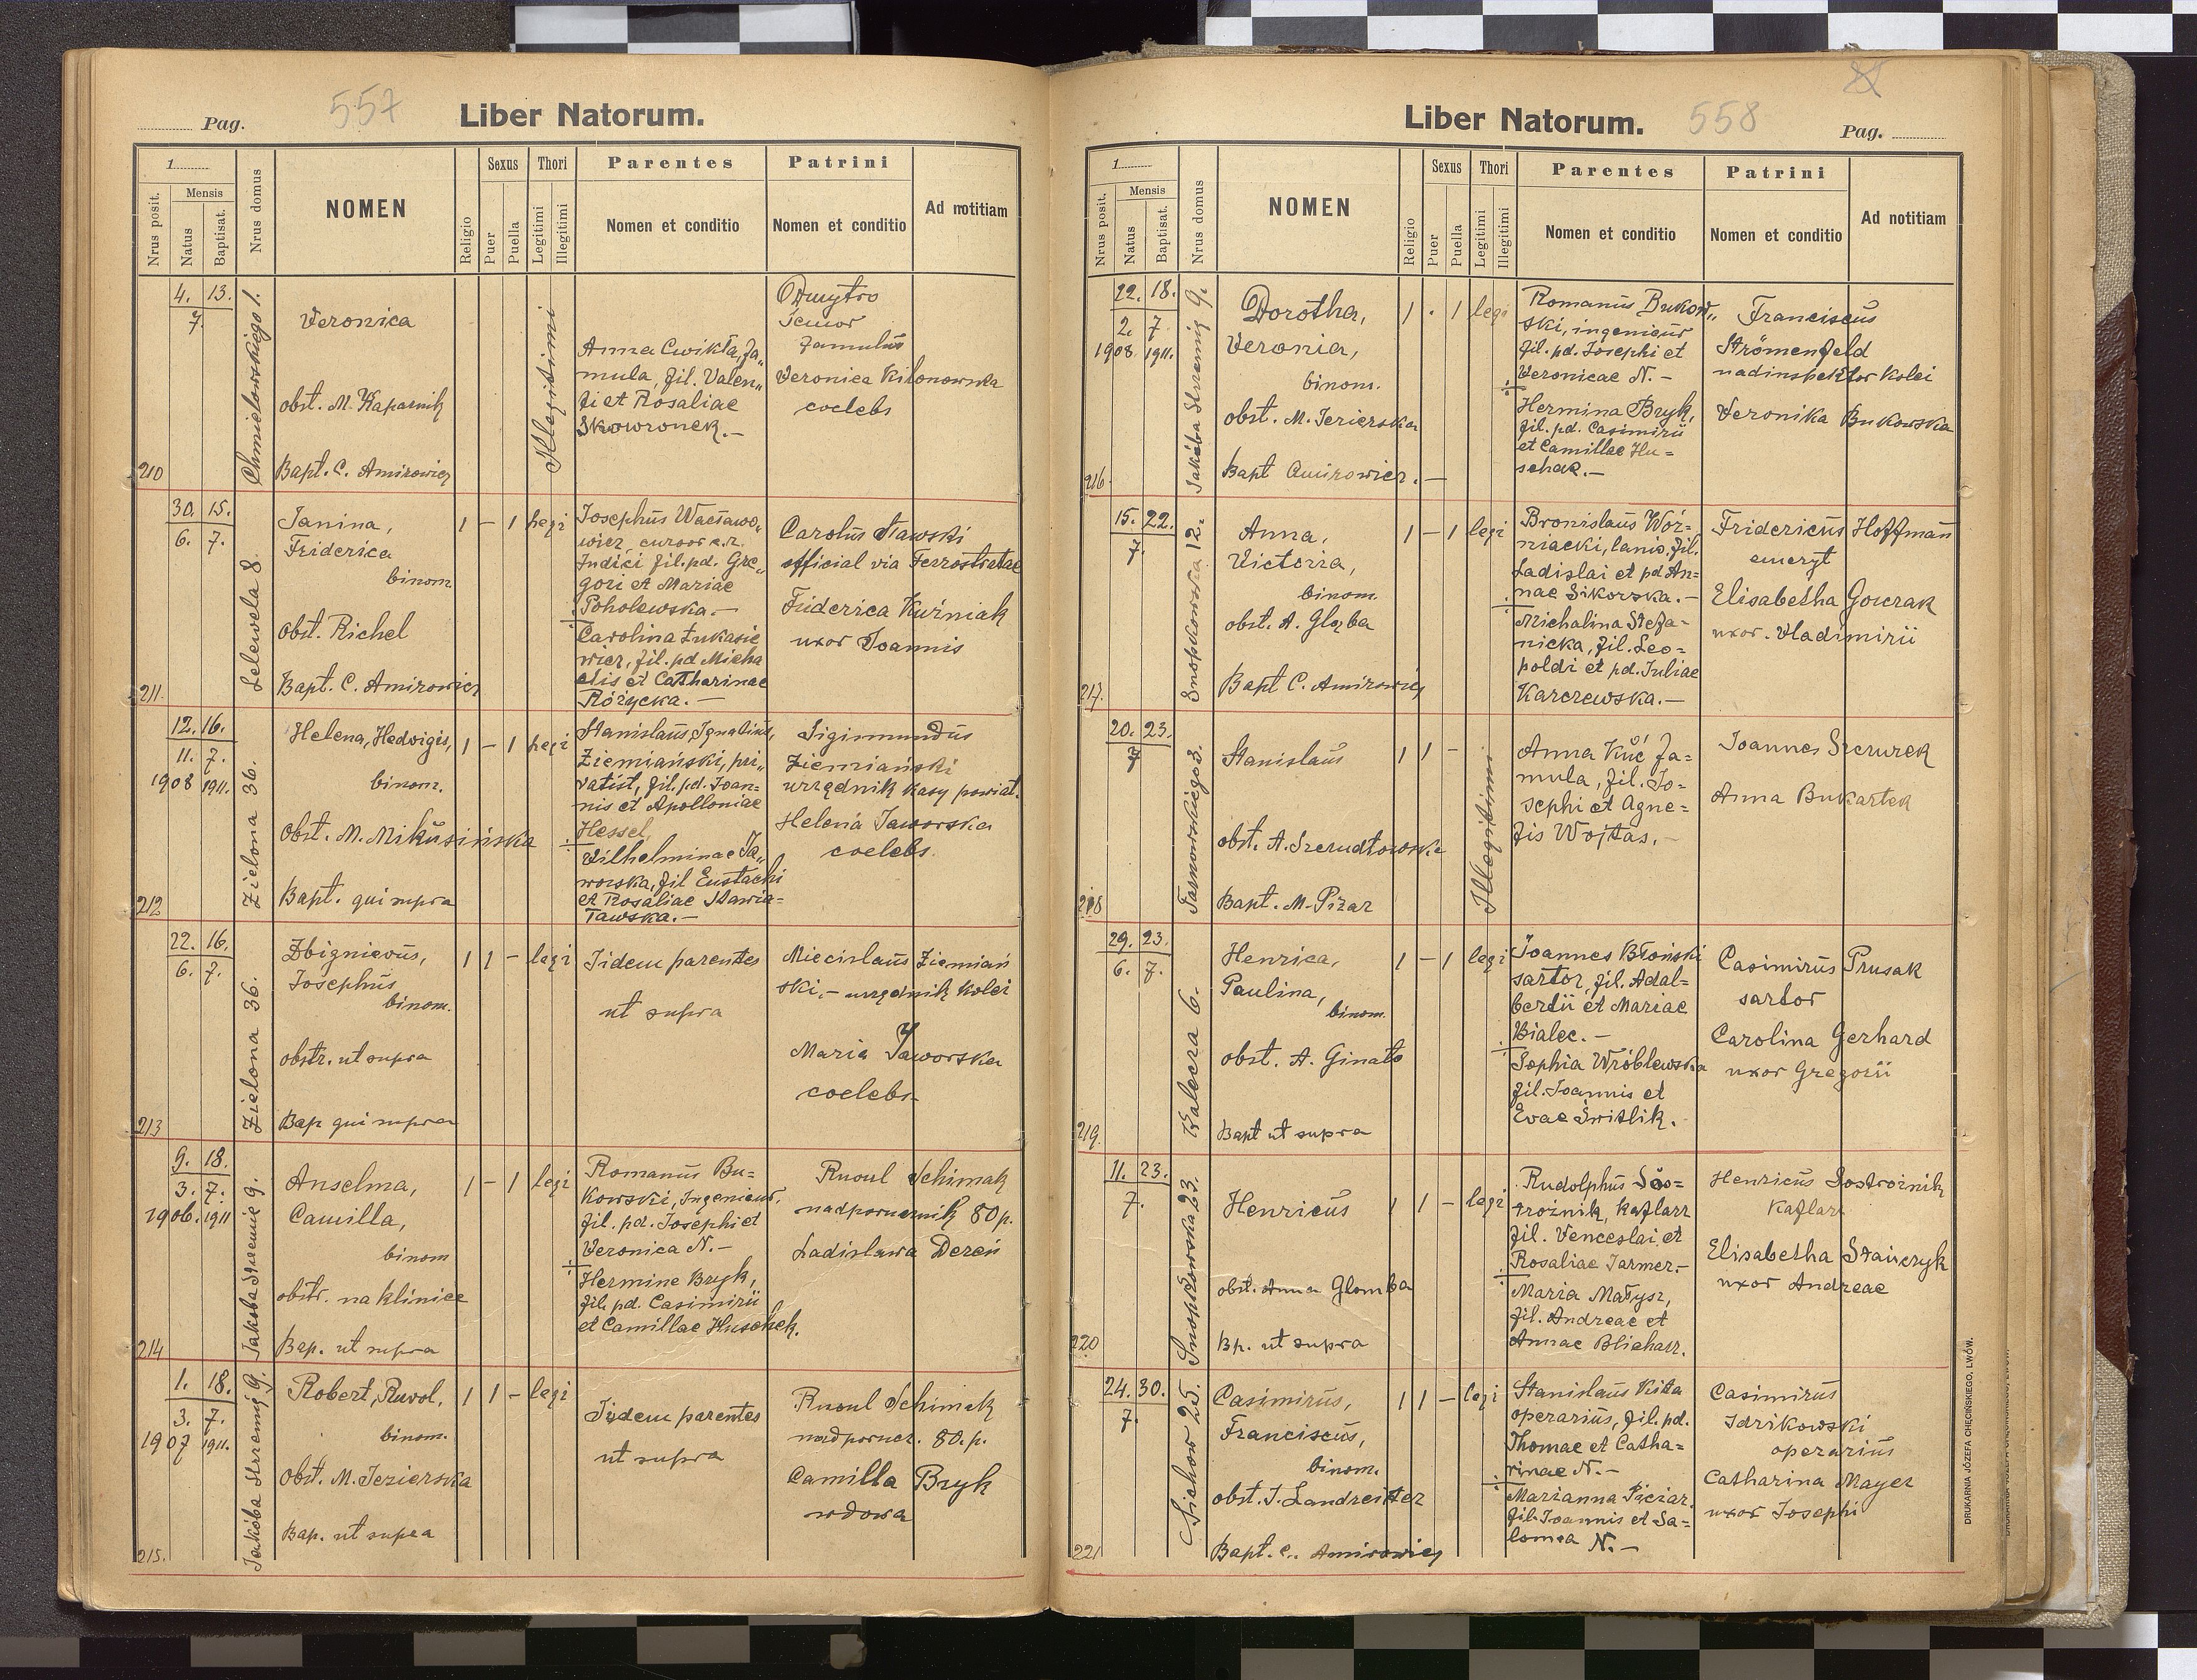 557
Pag.
Liber Natorum.
1
Nrus posit.
Mensis
Natus
Baptisat.
Nrus domus
NOMEN
Religio
Sexus
Puer
Puella
Thori
Legitimi
Illegitimi
Parentes
Nomen et conditio
Patrini
Nomen et conditio
Ad notitiam
210
4. 13.
7.
Chmielowskiego 1.
Veronica
obst. M. Kaparnik
Bapt. C. Amirowicz
Illegitimi
Anna Cwikła, fa„
mula, fil. Valen„
ti et Rosaliae
Skowronek.—
Dmytro
famulus
Veronica Kilonowska
coelebs
211.
30. 15.
6. 7.
Lelewela 8.
Janina,
Friderica
binom.
Obst. Richel
Bapt. C. Amirowicz
1 — 1 legi
Josephus Wacławo„
wicz, cursor c.r.
Judici fil. pd. Gre„
gori et Mariae
Poholewska.—
÷
Carolina Łukasie
wicz, fil. pd Micha
elis et Catharinae
Różycka.—
Carolus Sławski
official via Ferrostratae
Friderica Kuźniak
uxor Joannis
212
12. 16.
11. 7.
1908 1911.
Zielona 36.
Helena, Hedvigis,
binom.
Obst. M. Mikusińska
Bapt. qui supra
1 — 1 legi
Stanislaus, Ignatius,
Ziemiański, pri„
vatist, fil. pd. Joan=
nis et Apolloniae
Hessel,
÷
Vilhelminae Ja„
worska, fil Eustachi
et Rosaliae Stawia=
Tawska.—
Sigismundus
Ziemiański
urzędnik kasy powiat.
Helena Jaworska
coelebs.
213
22. 16.
6. 7.
Zielona 36.
Zbignievus,
Josephus
binom.
obstr. ut supra
Bap qui supra
1 1 — legi
Iidem parentes
ut supra
Miecislaus Ziemiań
ski,— urzędnik kolei
Maria Jaworska
coelebs
214
9. 18.
3. 7.
1906. 1911
Jakoba Strzemię 9.
Anselma,
Camilla,
binom
obstr. na klinice
Bap. ut supra
1 — 1 legi
Romanus Bu=
kowski, Ingenieur.
fil. pd. Josephi et
Veronica N.—
÷
Hermine Bryk,
fil. pd. Casimirii
et Camillae Huschek.
Ruoul Schimak
nadporucznik 80 p.
Ladislawa Dereń
215.
1. 18.
3. 7.
1907 1911.
Jakóba Strzemię 9.
Robert, Ruvol.
binom.
Obst. M. Jezierska
Bap. ut supra
1 1 — legi
Iidem parentes
ut supra
Ruoul Schimek
nadporucz. 80. p.
Camilla Bryk
wdowa
Liber Natorum.
558
Pag.
1
Nrus posit.
Mensis
Natus
Baptisat.
Nrus domus
NOMEN
Religio
Sexus
Puer
Puella
Thori
Legitimi
Illegitimi
Parentes
Nomen et conditio
Patrini
Nomen et conditio
Ad notitiam
216.
22. 18.
2. 7
1908 1911.
Jakóba Strzemię 9.
Dorotha,
Veronia,
binom.
obst. M. Jezierska
Bapt Amirowicz.—
1 . 1 legi
Romanus Bukow„
ski, ingenieur
fil. pd. Josephi et
Veronicae N.—
÷
Hermina Bryk,
fil. pd. Casimirii
et Camillae Hu=
schak.—
Franciscus
Strömenfeld
nadinspektor kolei
Veronika Bukowska
217.
15. 22.
7.
Snopkowska 12.
Anna,
Victoria,
binom.
obst. A. Głąba
Bapt C. Amirowicz
1 — 1 legi
Bronislaus Woź=
niacki, lanio, fil.
Ladislai et pd An=
nae Sikorska.—
÷
Michalina Stefa=
nicka, fil. Leo=
poldi et pd. Juliae
Karczewska.—
Fridericus Hoffman
emeryt
Elisabetha Gowrak
uxor. Vladimirii
218
20. 23.
7
Tarnowskiego 3.
Stanislaus
obst. A. Szczudłowska
Bapt. M. Pizar
1 1 —
Illegitimi
Anna Kuć fa=
mula, fil. Jo=
sephi et Agne=
tis Wojtas.—
Joannes Szczurek
Anna Bukartek
219.
29. 23.
6. 7.
Kalecza 6.
Henrica,
Paulina,
binom.
obst. A. Ginato
Bapt ut supra
1 — 1 legi
Joannes Błoński
sartor, fil. Adal=
bertii et Mariae
Bialec.—
÷
Sophia Wróblewska
fil. Joannis et
Evae Switlik.
Casimirus Prusak
sartor
Carolina Gerhard
uxor Gregorii
220
11. 23.
7.
Snopkowska 23.
Henricus
obst. Anna Glomba
Bp. ut supra
1 1 — legi
Rudolphus Sos=
trożnik, kaflarz
fil. Venceslai et
Rosaliae Jarmer.—
÷
Maria Małysz,
fil. Andreae et
Annae Blicharz.
Henricus Sostrożnik
Kaflarz
Elisabetha Stańczyk
uxor Andreae
221
24. 30.
7.
Sichow 25.
Casimirus,
Franciscus,
binom.
obst. J. Landreiter
Bapt. C. Amirowicz
1 1 — legi
Stanislaus Kista
operarius, fil. pd.
Thomae et Catha=
rinae N.—
÷
Marianna Piciar.
fil. Joannis et Sa=
lomea N.—
Casimirus
Idzikowski
operarius
Catharina Mayer
uxor Josephi
DRUKARNIA JÓZEFA CHĘCIŃSKIEGO, LWÓW.